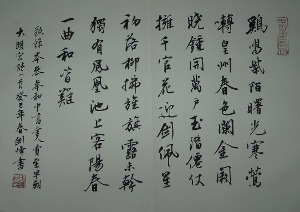 鷄鳴紫陌曙光寒鶯
囀皇州春色闌金闕
曉鐘開萬户玉階僊仗
擁千官花迎劍佩星
初落柳拂旌旗露未幹
獨有鳳凰池上客陽春
一曲和皆難
敬錄岑參奉和中書舍人賈至早朝
大明宫詩一首癸巳年春劉